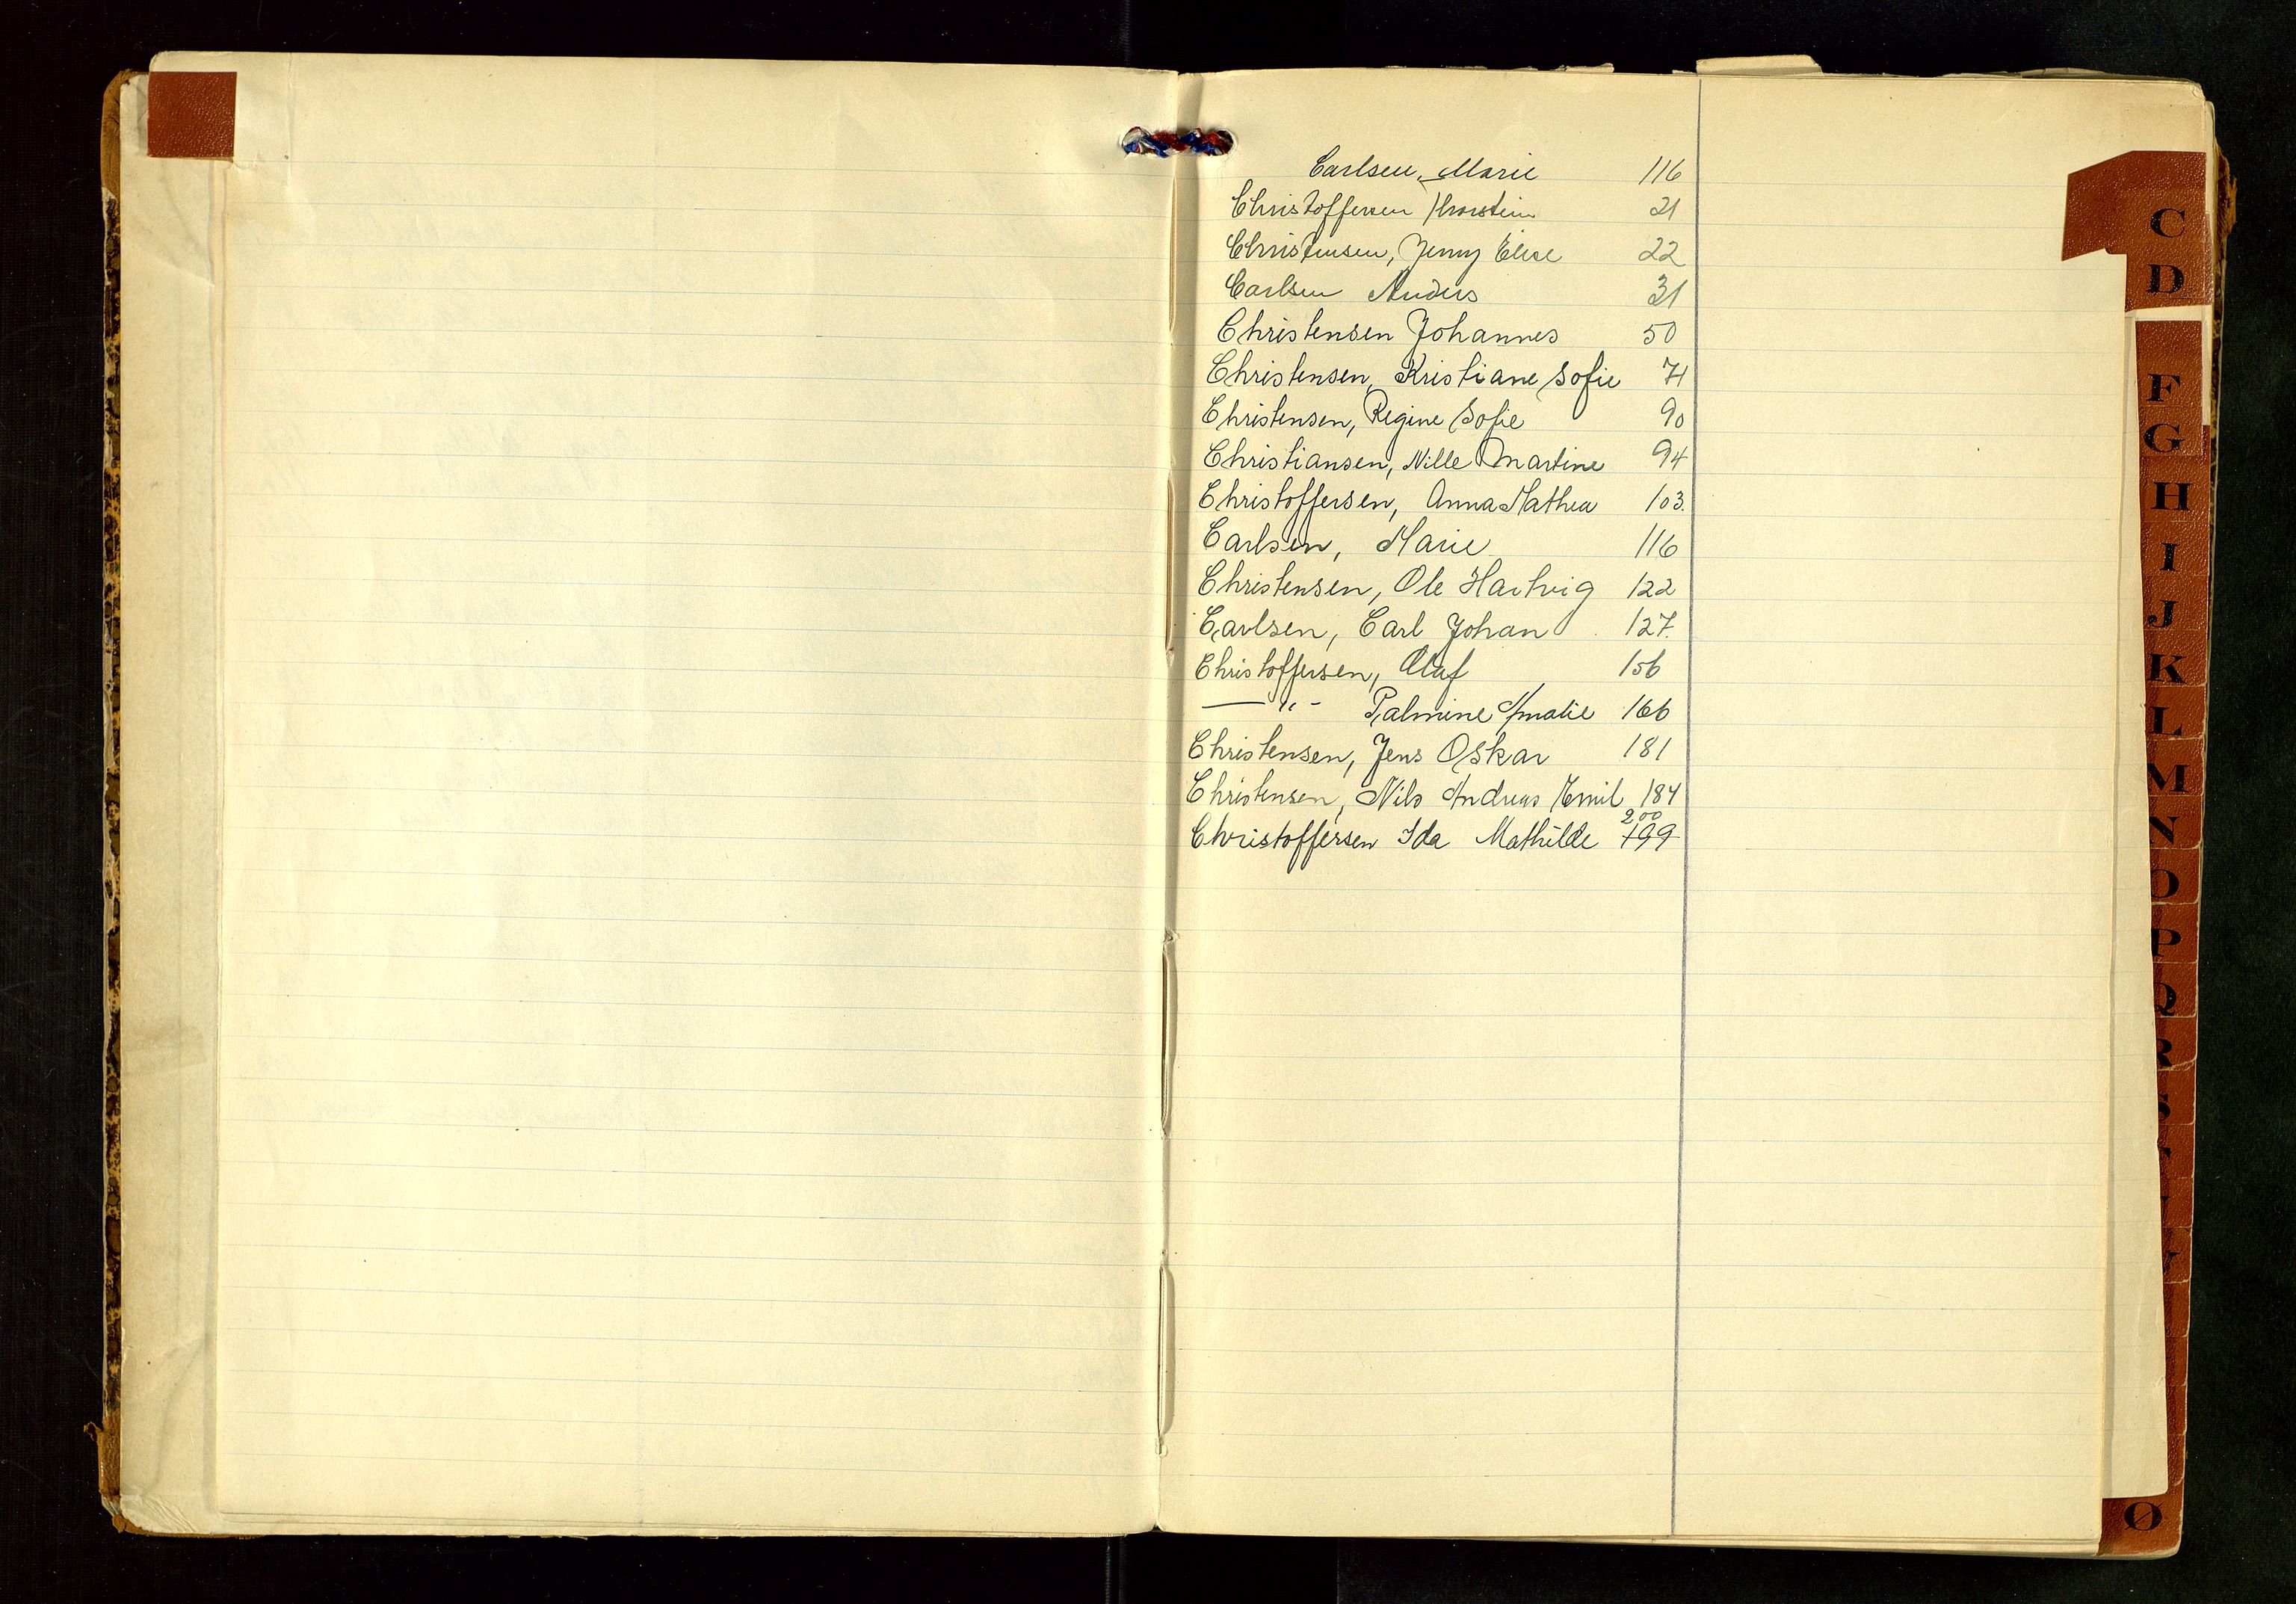 Carlsen, Marie 116
Christoffersen Thorstein 21
Christensen, Jenny Elise 22
Carlsen Anders 31
Christensen Johannes 50
Christensen, Kristiane Sofie 71
Christensen, Regine Sofie 90
Christiansen, Nille Martine 94
Christoffersen, Anna Mathea 103.
Carlsen, Marie 116
Christensen, Ole Hartvig 122
Carlsen, Carl Johan 127.
Christoffersen, Olaf 156
— " - Palmine Amalie 166
Christensen, Jens Oskar 181
Christensen, Nils Andreas Emil 184
200
Christoffersen Ida Mathilde 199
C
D
F
G
H
I
J
K
L
M
N
O
P
Q
R
S
Ø